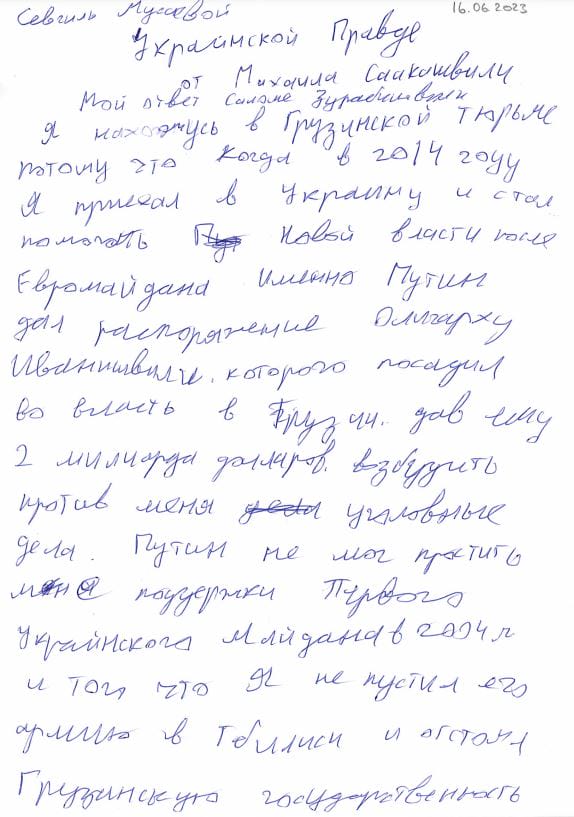 16.06.2023
Севгиль Мусаевой
Украинской Правде
от Михаила Саакашвили
Мой ответ Саломе Зурабишвили
Я нахожусь в Грузинской тюрьме
потому что когда в 2014 году
Я приехал в Украину и стал
помогать новой власти после
Евромайдана именно Путин
дал распоряжение Олигарху
Иванишвили, которого посадил
во власть в Грузии, дав ему
2 милиарда долларов, возбудить
против меня дела уголовные
дела. Путин не мог простить
меня поддержки Первого
Украинского Майдана в 2004 г
и того что Я не пустил его
армию в Тбилиси и отстоял
Грузинскую государственность